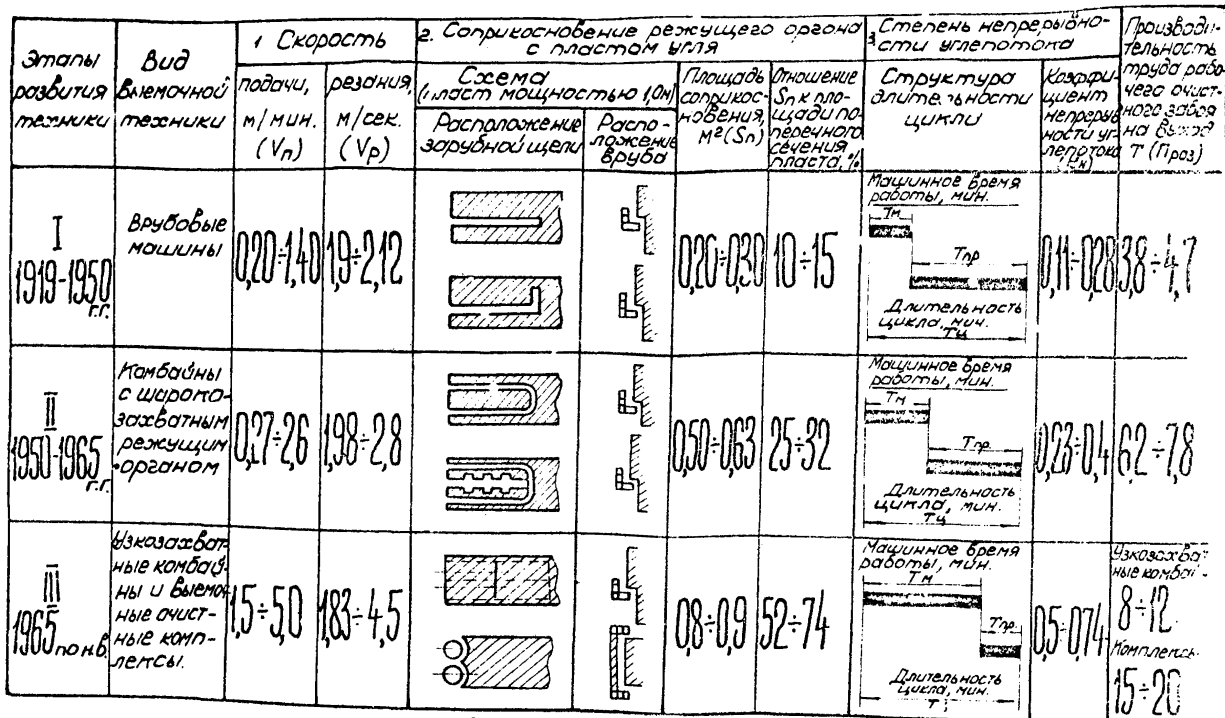 Этапы
развития
техники
Вид
выемочной
техники
1 Скорость
подачи,
м/мин.
(Vп)
резания,
м/сек.
(Vр)
2. Соприкосновение режущего органа
с пластом угля
Схема
(пласт мощностью 1,0м)
Расположение
зарубной щели
Распо-
ложение
вруба
Площадь
соприкос-
новения,
м² (Sп)
Отношение
Sп к пло-
щади по-
перечного
сечения
пласта, %
3. Степень непрерывно-
сти углепотока
Структура
длительности
цикла
Коэффи-
циент
непрерыв
ности уг-
лепотока
Производи-
тельность
труда рабо-
чего очист-
ного забоя
на выход
Т (Проз)
I
1919-1950
г.г.
Врубовые
машины
0,20÷1,40
1,9÷2,12
0,20÷0,30
10÷15
Машинное время
работы, мин.
Тм
Тпр
Длительность
цикла, мин.
Тц
0,11÷0,28
3,8÷4,7
II
1950-1965
г.г.
Комбайны
с широко-
захватным
режущим
органом
0,27÷2,6
1,98÷2,8
0,50÷0,63
25÷32
Машинное время
работы, мин.
Тм
Тпр.
Длительность
цикла, мин.
Тц
0,23÷0,4
6,2÷7,8
III
1965 по н.в.
Узкозахват
ные комбай-
ны и выемоч
ные очист-
ные комп-
лексы.
1,5÷5,0
1,83÷4,5
0,8÷0,9
52÷74
Машинное время
работы, мин.
Тм
Тпр
Длительность
цикла, мин.
Т
0,5÷0,74
Узкозахва
ные комбай-
8÷12
Комплекс
15÷20